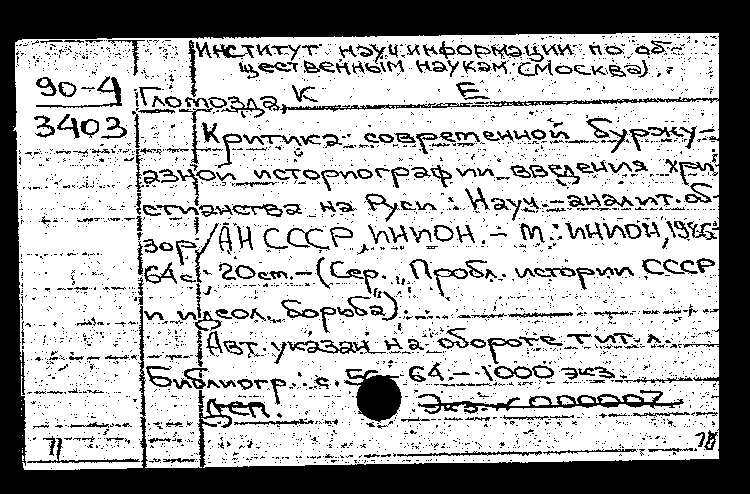 Институт науч. информации по об-
щественным наукам (Москва).
90-4
3403
Гломозда, К Е
Критика современной буржу-
азной историографии введения хри-
стианства на Руси : Науч.-аналит. об-
зор / АН СССР, ИНИОН. - М. : ИНИОН, 1986.
64с ; 20см. - (Сер. "Пробл. истории СССР
и идеол. борьба").
Авт. указан на обороте тит. л.
Библиогр.: с. 56-64. - 1000 экз.
ДЕП. Экз. № 000007
11